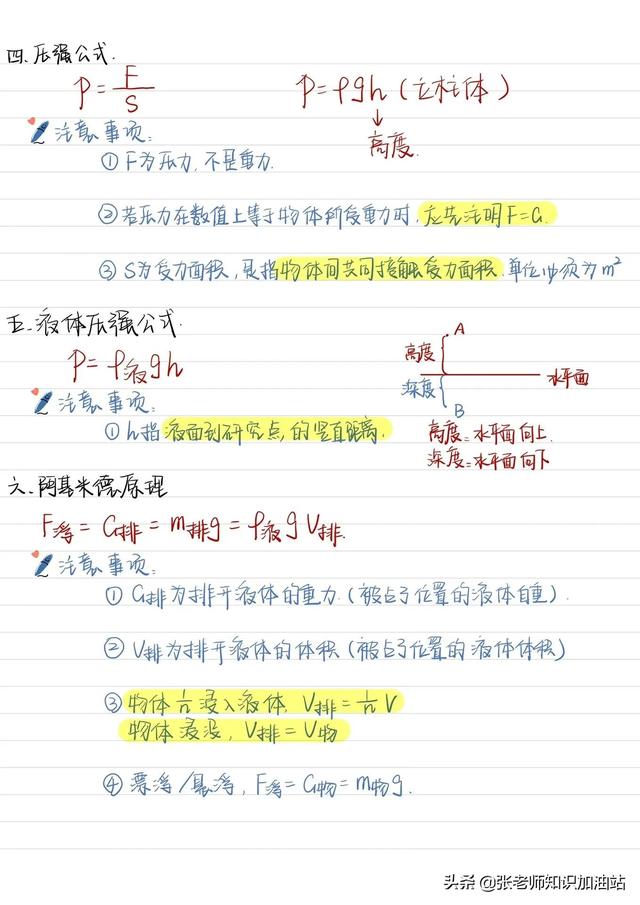 四.压强公式.
P=F/S P=ρgh(立柱体)
高度.
注意事项:
①F为压力,不是重力.
②若压力在数值上等于物体所受重力时,应先注明F=G.
③S为受力面积,是指物体间共同接触受力面积.单位必须为m²
五.液体压强公式.
P=ρ液gh
A
高度
水平面
深度
B
注意事项:
①h指液面到研究点的竖直距离.
高度=水平面向上.
深度=水平面向下
六.阿基米德原理
F浮=G排=m排g=ρ液gV排.
注意事项:
①G排为排开液体的重力(被占了位置的液体自重).
②V排为排开液体的体积(被占了位置的液体体积)
③物体1/n浸入液体,V排=1/nV
物体浸没,V排=V物
④漂浮/悬浮,F浮=G物=m物g.
头条@张老师知识加油站